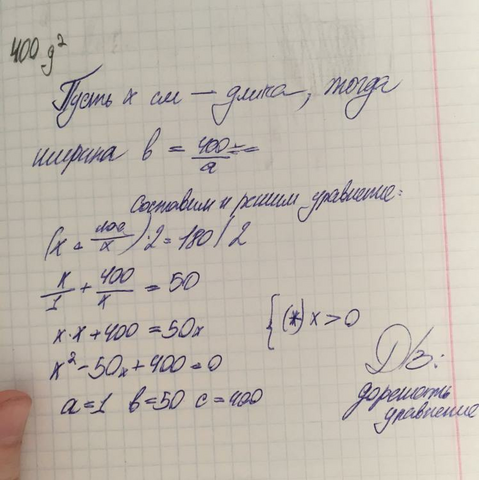 400 g²
Пусть x см — длина, тогда
ширина b = 400/a =
составим и решим уравнение:
(x + 400/x) · 2 = 180 / 2
x/1 + 400/x = 50
x·x + 400 = 50x
{(*) x > 0
x² - 50x + 400 = 0
a = 1 b = 50 c = 400
Д/з:
дорешать
уравнение